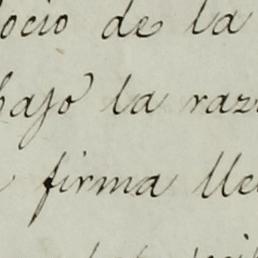 ocio de la
bajo la raz
firma lle